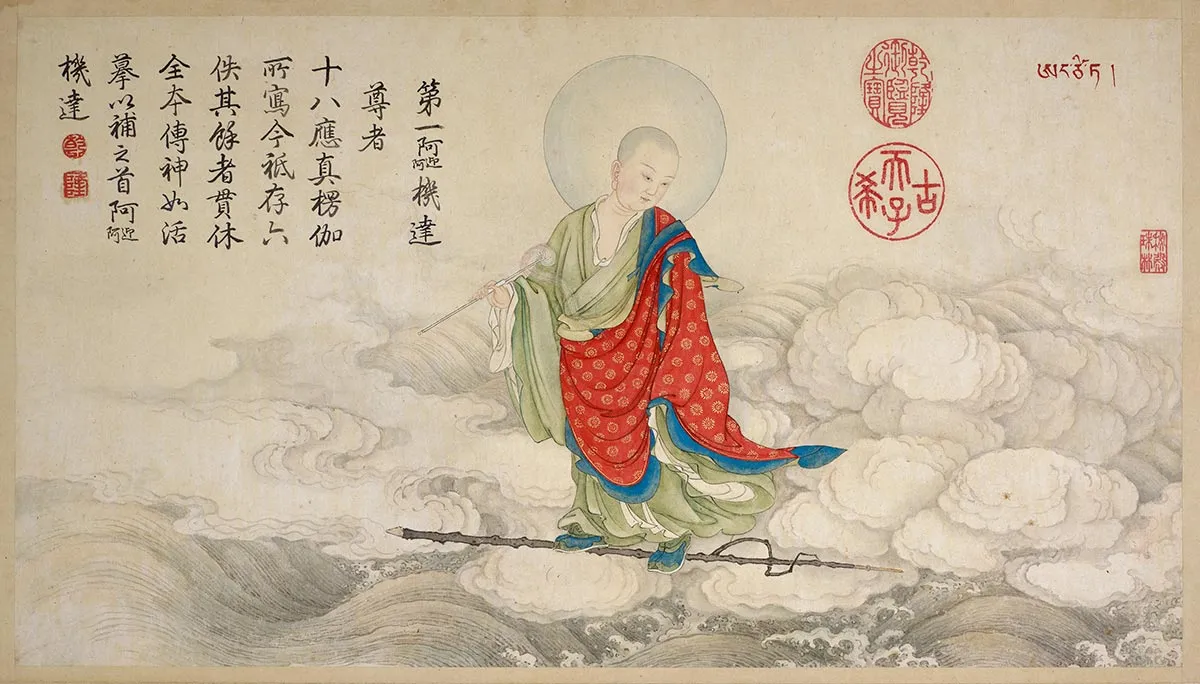 乾隆御覽之寶
古希天子
秘殿珠林
第一阿迎阿機達
尊者
十八應真楞伽
所寫今祗存六
佚其餘者貫休
全本傳神如活
摹以補之首阿迎阿
機達
乾
隆